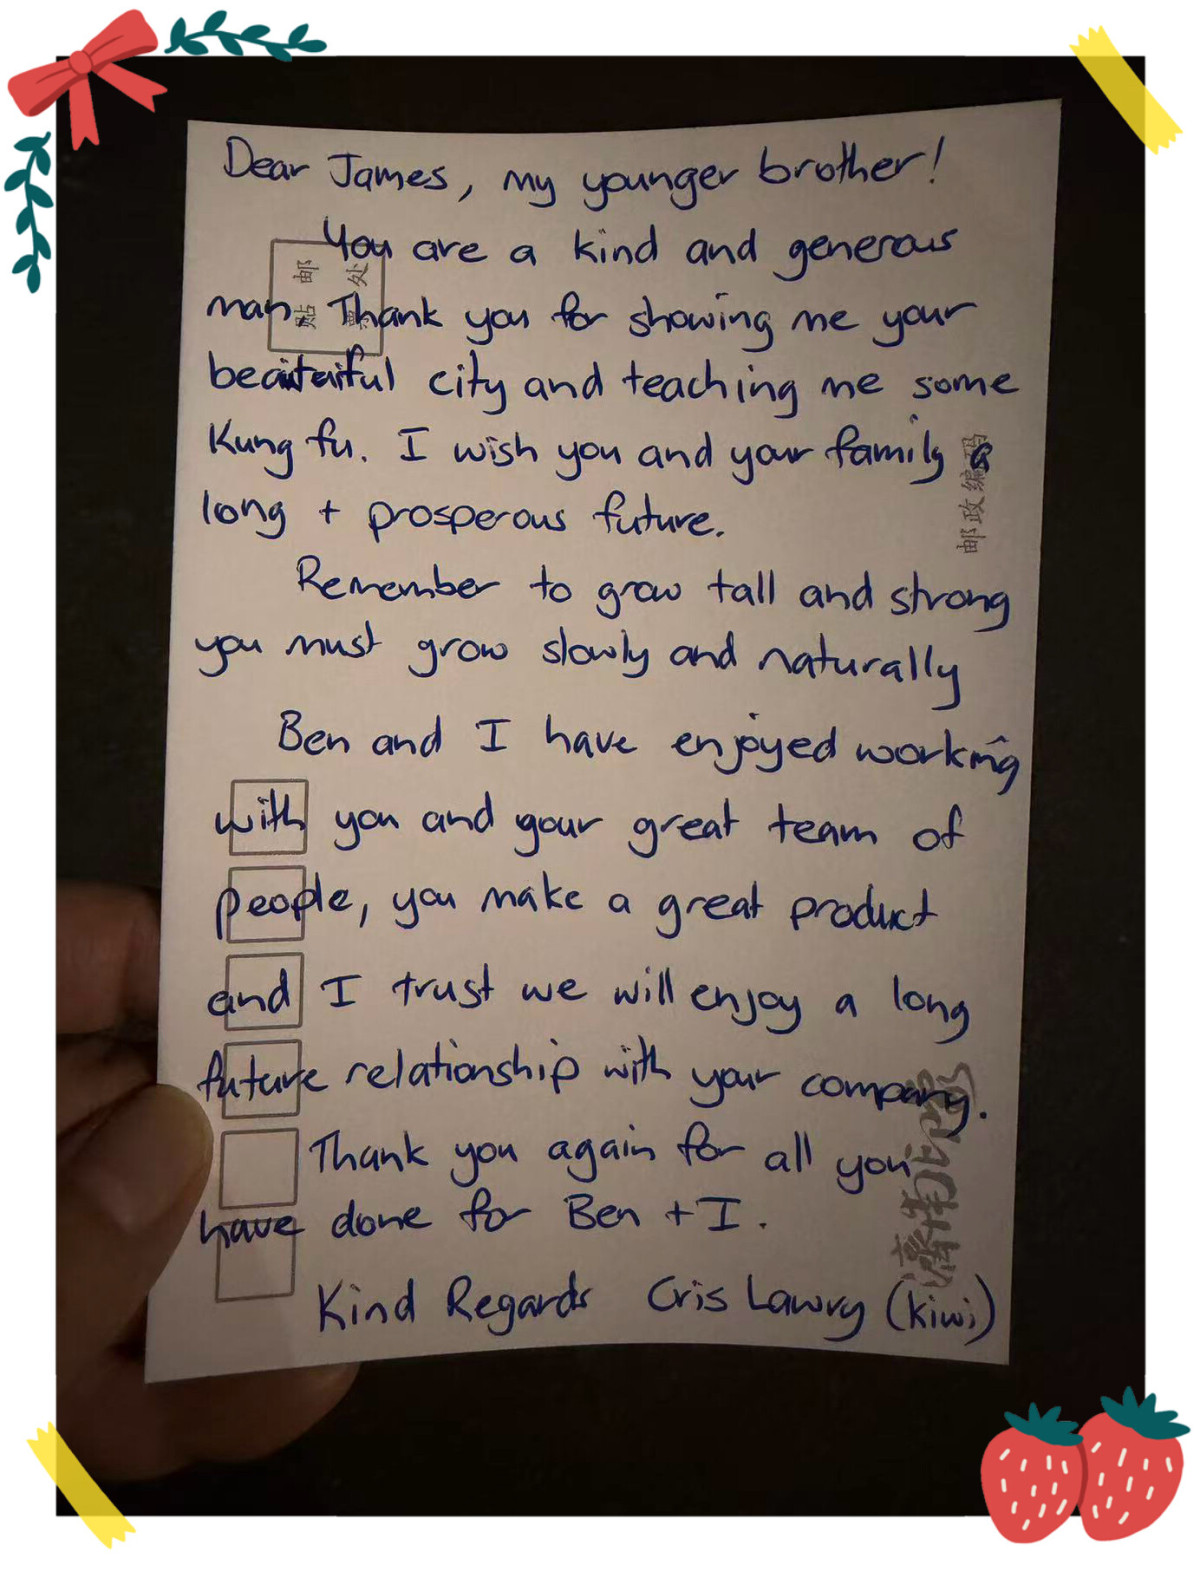 Dear James, my younger brother!
You are a kind and generous
man. Thank you for showing me your
beautiful city and teaching me some
Kung fu. I wish you and your family a
long + prosperous future.
Remember to grow tall and strong
you must grow slowly and naturally
Ben and I have enjoyed working
with you and your great team of
people, you make a great product
and I trust we will enjoy a long
future relationship with your company.
Thank you again for all you
have done for Ben + I.
Kind Regards Cris Lawry (kiwi)
贴邮
票处
邮政编码